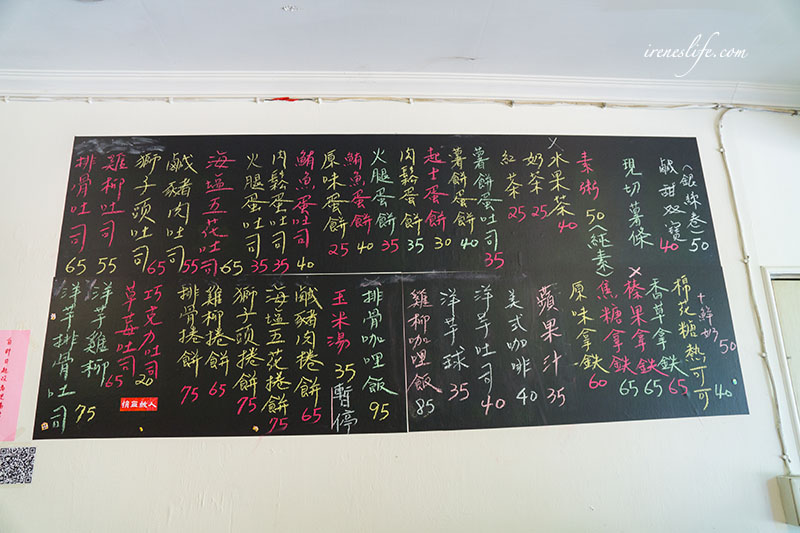 ireneslife.com
(銀絲卷) 50
鹹甜双寶 40
現切薯條
素粥 50 (純素)
水果茶 40
奶茶 25
紅茶 25
薯餅蛋吐司 35
薯餅蛋餅 40
起士蛋餅 30
肉鬆蛋餅 35
火腿蛋餅 35
鮪魚蛋餅 40
原味蛋餅 25
鮪魚蛋吐司 40
肉鬆蛋吐司 35
火腿蛋吐司 35
海塩五花吐司 65
鹹豬肉吐司 55
獅子頭吐司 65
雞柳吐司 55
排骨吐司 65
+鮮奶 50
棉花糖熱可可 40
香草拿鉄 65
榛果拿鉄 65
焦糖拿鉄 65
原味拿鉄 60
蘋果汁 35
美式咖啡 40
洋芋吐司 40
洋芋球 35
雞柳咖哩飯 85
排骨咖哩飯 95
玉米湯 35 暫停
鹹豬肉捲餅 65
海塩五花捲餅 75
獅子頭捲餅 75
雞柳捲餅 65
排骨捲餅 75
巧克力吐司 20
草莓吐司
洋芋雞柳 65
洋芋排骨吐司 75